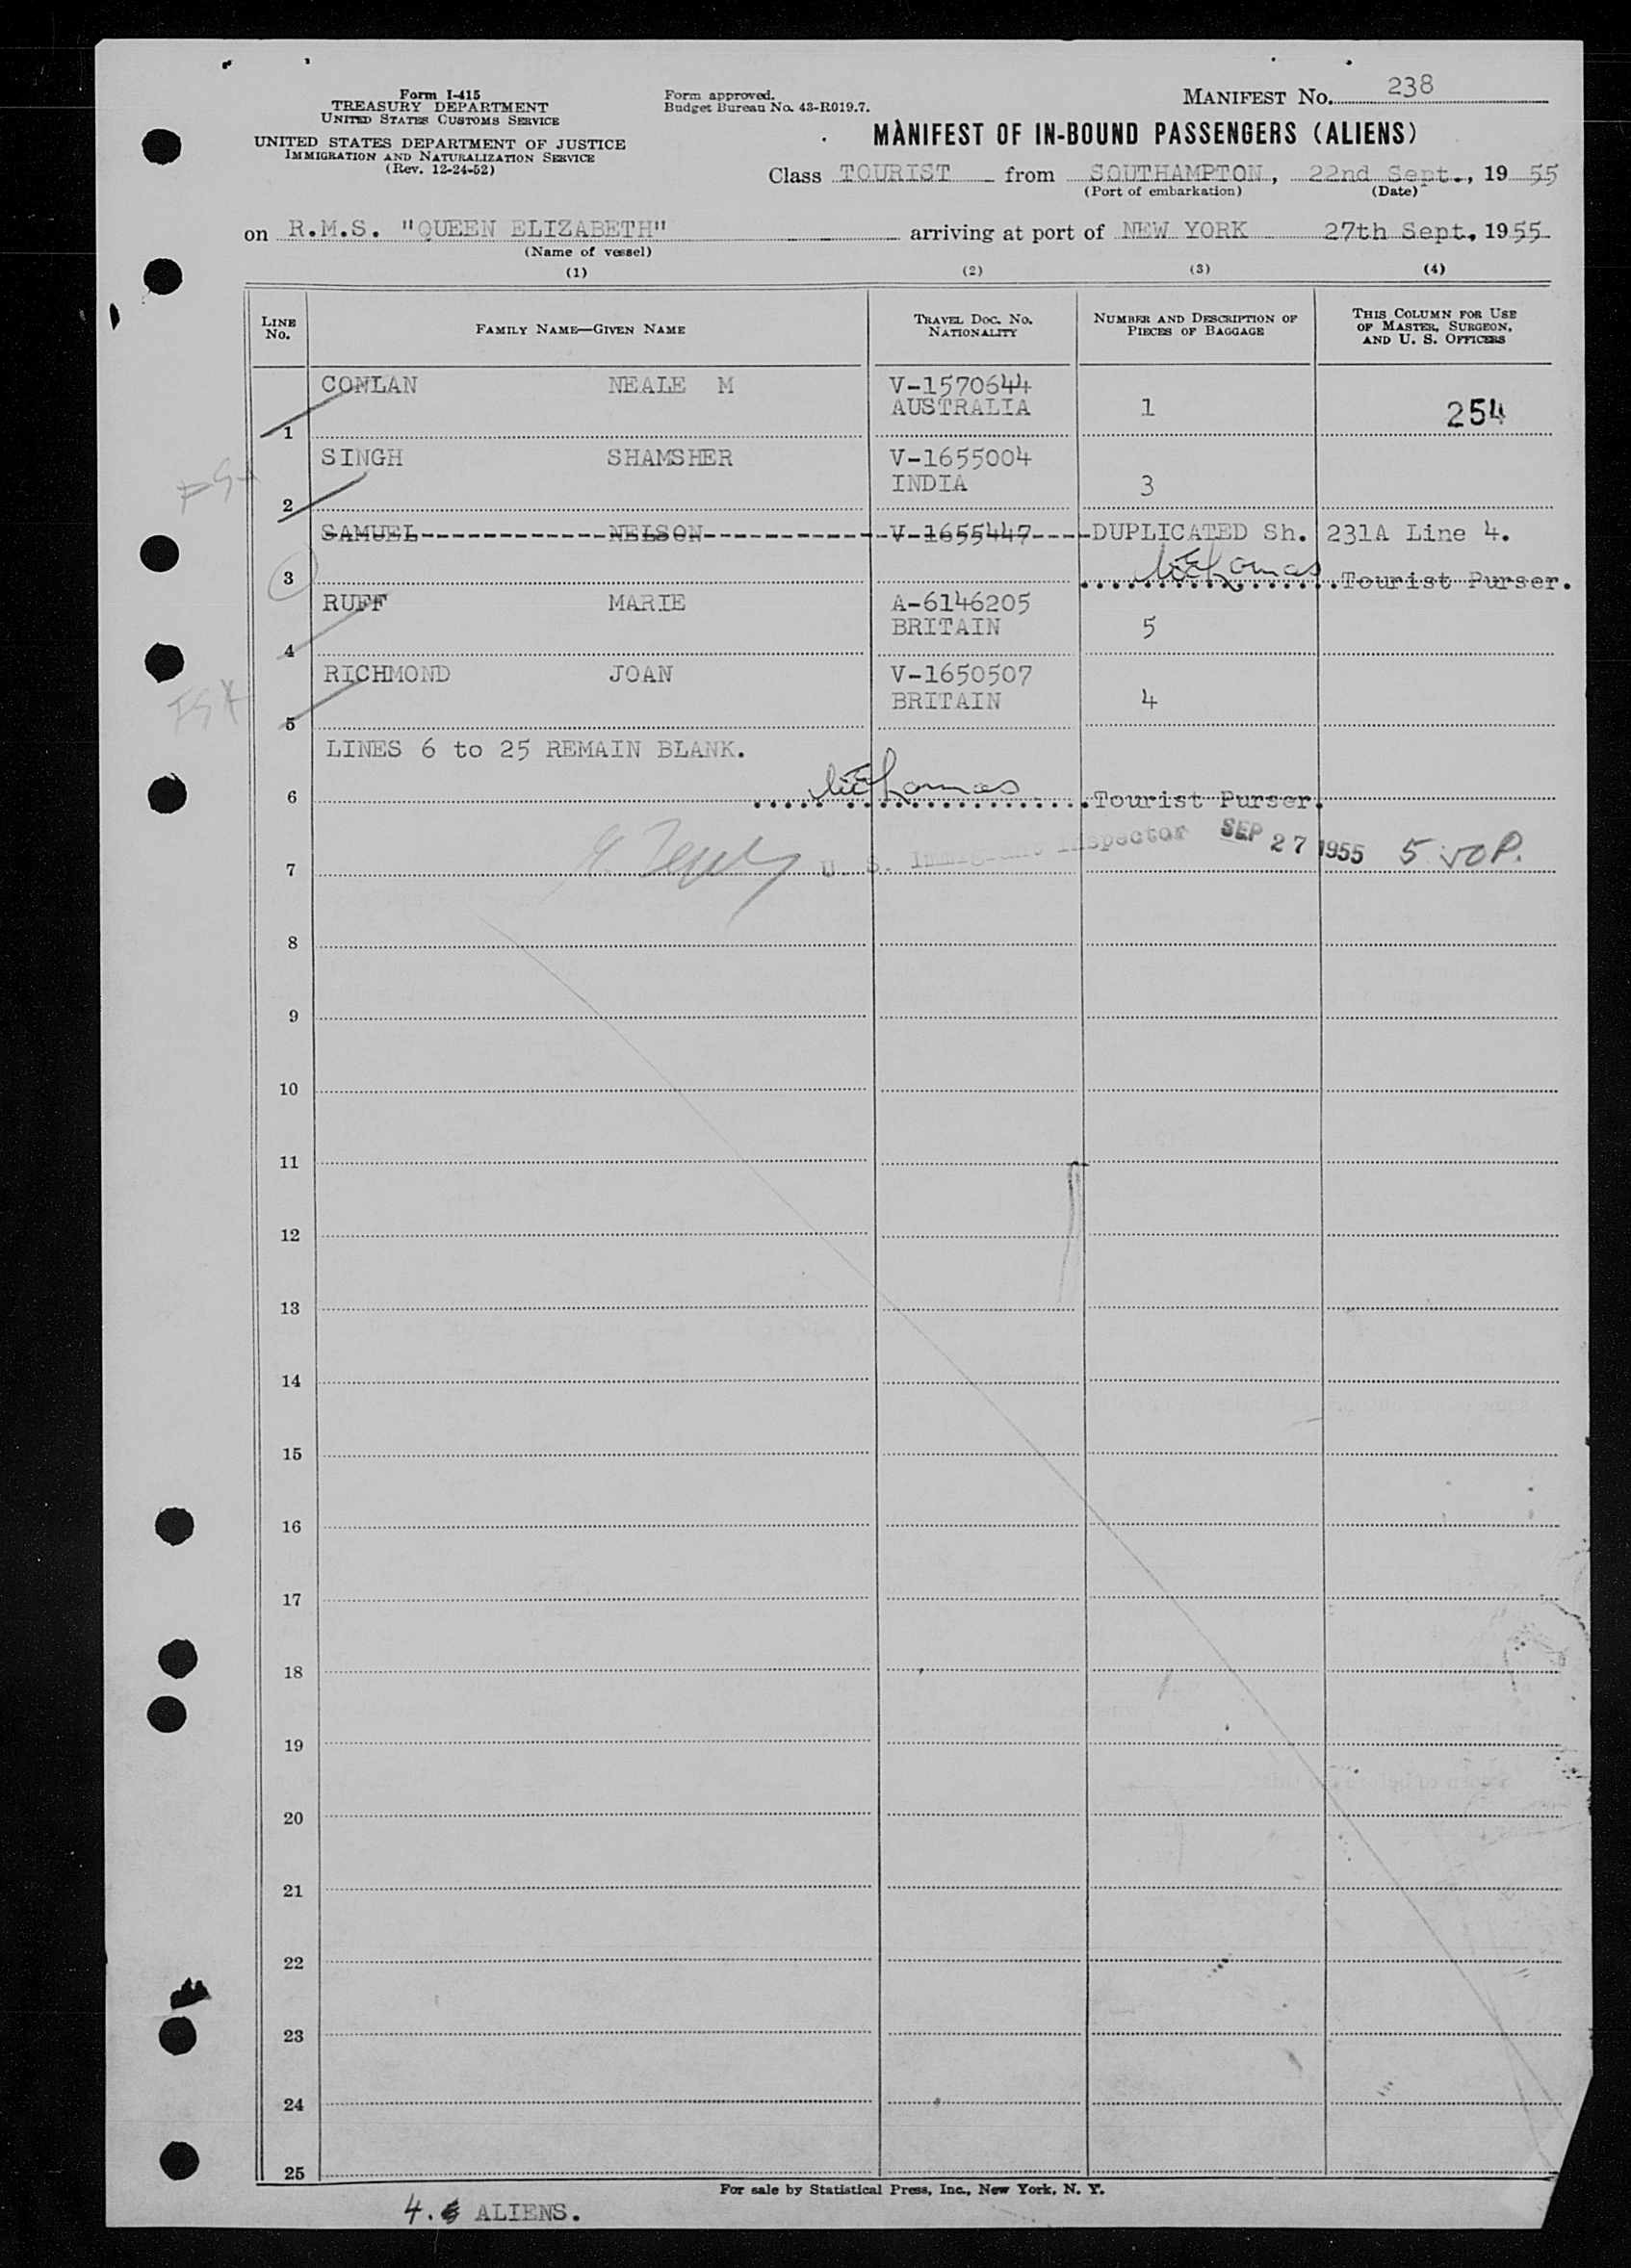 Form I-415
TREASURY DEPARTMENT
UNITED STATES CUSTOMS SERVICE
UNITED STATES DEPARTMENT OF JUSTICE
IMMIGRATION AND NATURALIZATION SERVICE
(Rev. 12-24-52)
Form approved.
Budget Bureau No. 43-R019.7.
MANIFEST No. 238
MANIFEST OF IN-BOUND PASSENGERS (ALIENS)
Class TOURIST from SOUTHAMPTON, 22nd Sept., 19 55
(Port of embarkation) (Date)
on R.M.S. "QUEEN ELIZABETH" arriving at port of NEW YORK 27th Sept. 1955
(Name of vessel)
(1) (2) (3) (4)
LINE No. FAMILY NAME—GIVEN NAME TRAVEL DOC. No. NATIONALITY NUMBER AND DESCRIPTION OF PIECES OF BAGGAGE THIS COLUMN FOR USE OF MASTER, SURGEON, AND U. S. OFFICERS
CONLAN NEALE M V-1570644
AUSTRALIA 1 254
1
SINGH SHAMSHER V-1655004
INDIA 3
2
SAMUEL NELSON V-1655447 DUPLICATED Sh. 231A Line 4.
3 Tourist Purser.
RUFF MARIE A-6146205
BRITAIN 5
4
RICHMOND JOAN V-1650507
BRITAIN 4
5
LINES 6 to 25 REMAIN BLANK.
6 Tourist Purser.
7 U. S. Immigrant Inspector SEP 27 1955 5
8
9
10
11
12
13
14
15
16
17
18
19
20
21
22
23
24
25
For sale by Statistical Press, Inc., New York, N. Y.
4. ALIENS.